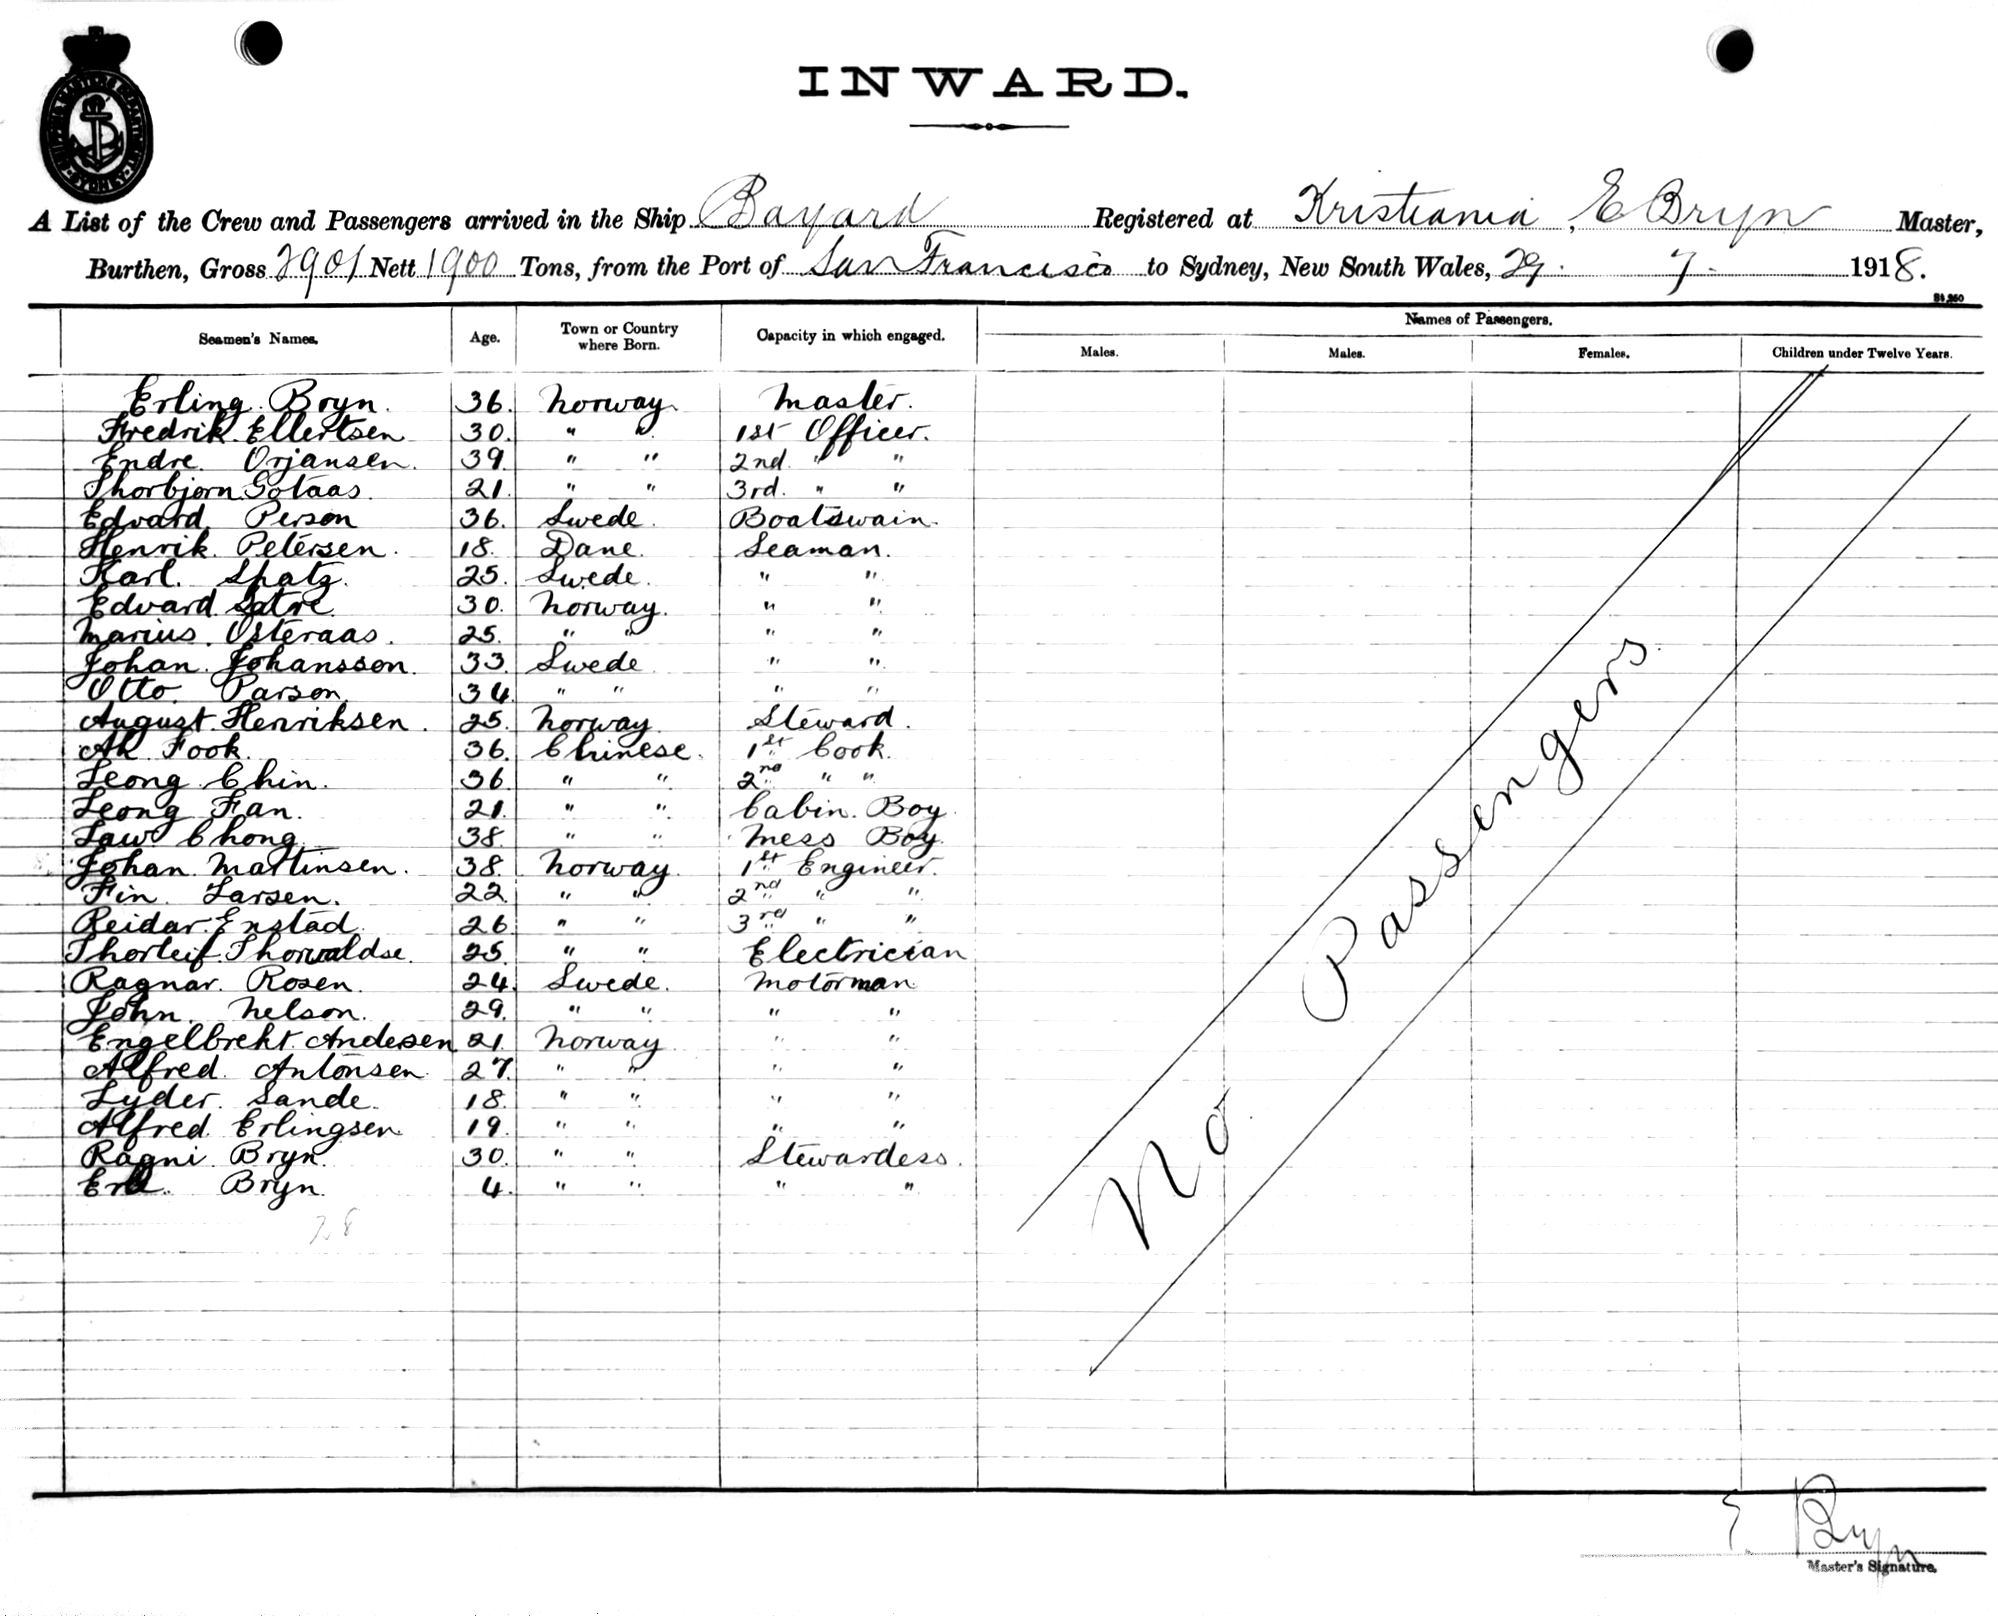 INWARD.
A List of the Crew and Passengers arrived in the Ship Bayard Registered at Kristiania, E Bryn Master,
Burthen, Gross 2901 Nett 1900 Tons, from the Port of San Francisco to Sydney, New South Wales, 29. 7. 1918.
Seamen's Names. Age. Town or Country where Born. Capacity in which engaged. Names of Passengers.
Males. Males. Females. Children under Twelve Years.
Erling Bryn. 36. Norway. Master.
Fredrik Ellertsen 30. " " 1st Officer.
Endre Orjansen. 39. " " 2nd. " "
Thorbjorn Gotaas. 21. " " 3rd. " "
Edvard Person 36. Swede. Boatswain.
Henrik Petersen. 18. Dane. Seaman.
Karl Spatz. 25. Swede. " "
Edvard Satre 30. Norway. " "
Marius Osteraas. 25. " " " "
Johan Johansson. 33. Swede " "
Otto Parson. 34. " " " "
August Henriksen. 25. Norway Steward.
Ah Fook. 36. Chinese. 1st Cook.
Leong Chin. 36 " " 2nd " "
Leong Fan. 21. " " Cabin Boy.
Law Chong. 38. " " Mess Boy.
Johan Martinsen. 38. Norway. 1st Engineer.
Fin Larsen. 22. " " 2nd " "
Reidar Enstad. 26 " " 3rd " "
Thorleif Thorwaldse. 25. " " Electrician
Ragnar Rosen. 24. Swede. Motorman
John Nelson. 29. " " " "
Engelbrekt Andersen 21. Norway " "
Alfred Antonsen. 27. " " " "
Lyder Sande. 18. " " " "
Alfred Erlingsen 19. " " " "
Ragni Bryn. 30. " " Stewardess.
Bryn. 4. " " " "
28
No Passengers.
E. Bryn
Master's Signature.